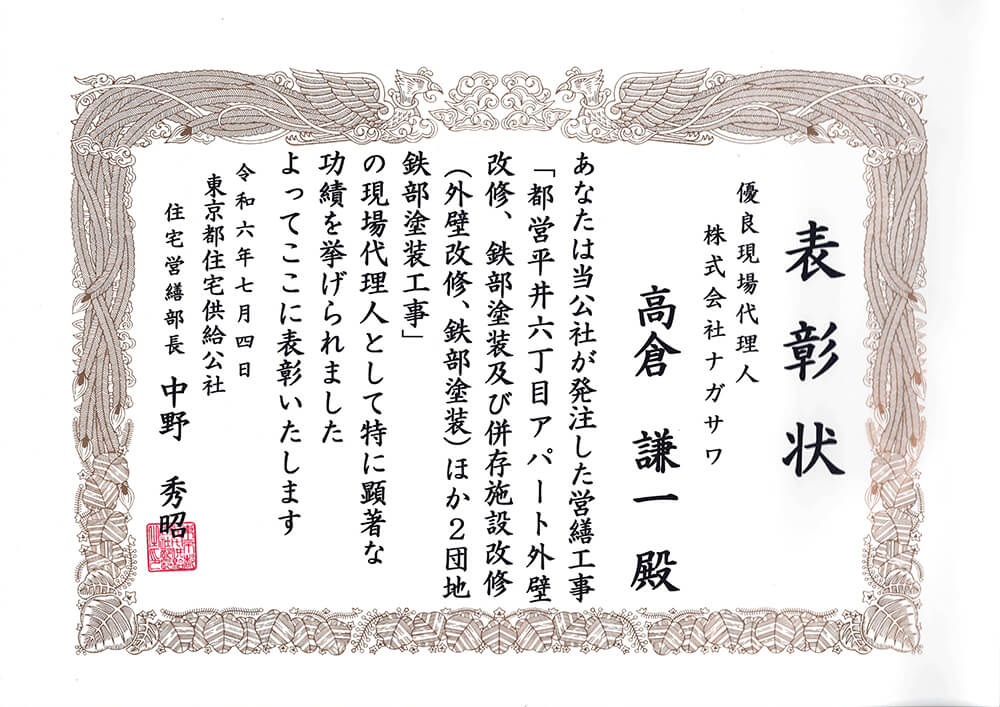 表彰状
優良現場代理人
株式会社ナガサワ
高倉 謙一 殿
あなたは当公社が発注した営繕工事
「都営平井六丁目アパート外壁
改修、鉄部塗装及び併存施設改修
(外壁改修、鉄部塗装)ほか2団地
鉄部塗装工事」
の現場代理人として特に顕著な
功績を挙げられました
よってここに表彰いたします
令和六年七月四日
東京都住宅供給公社
住宅営繕部長 中野 秀昭